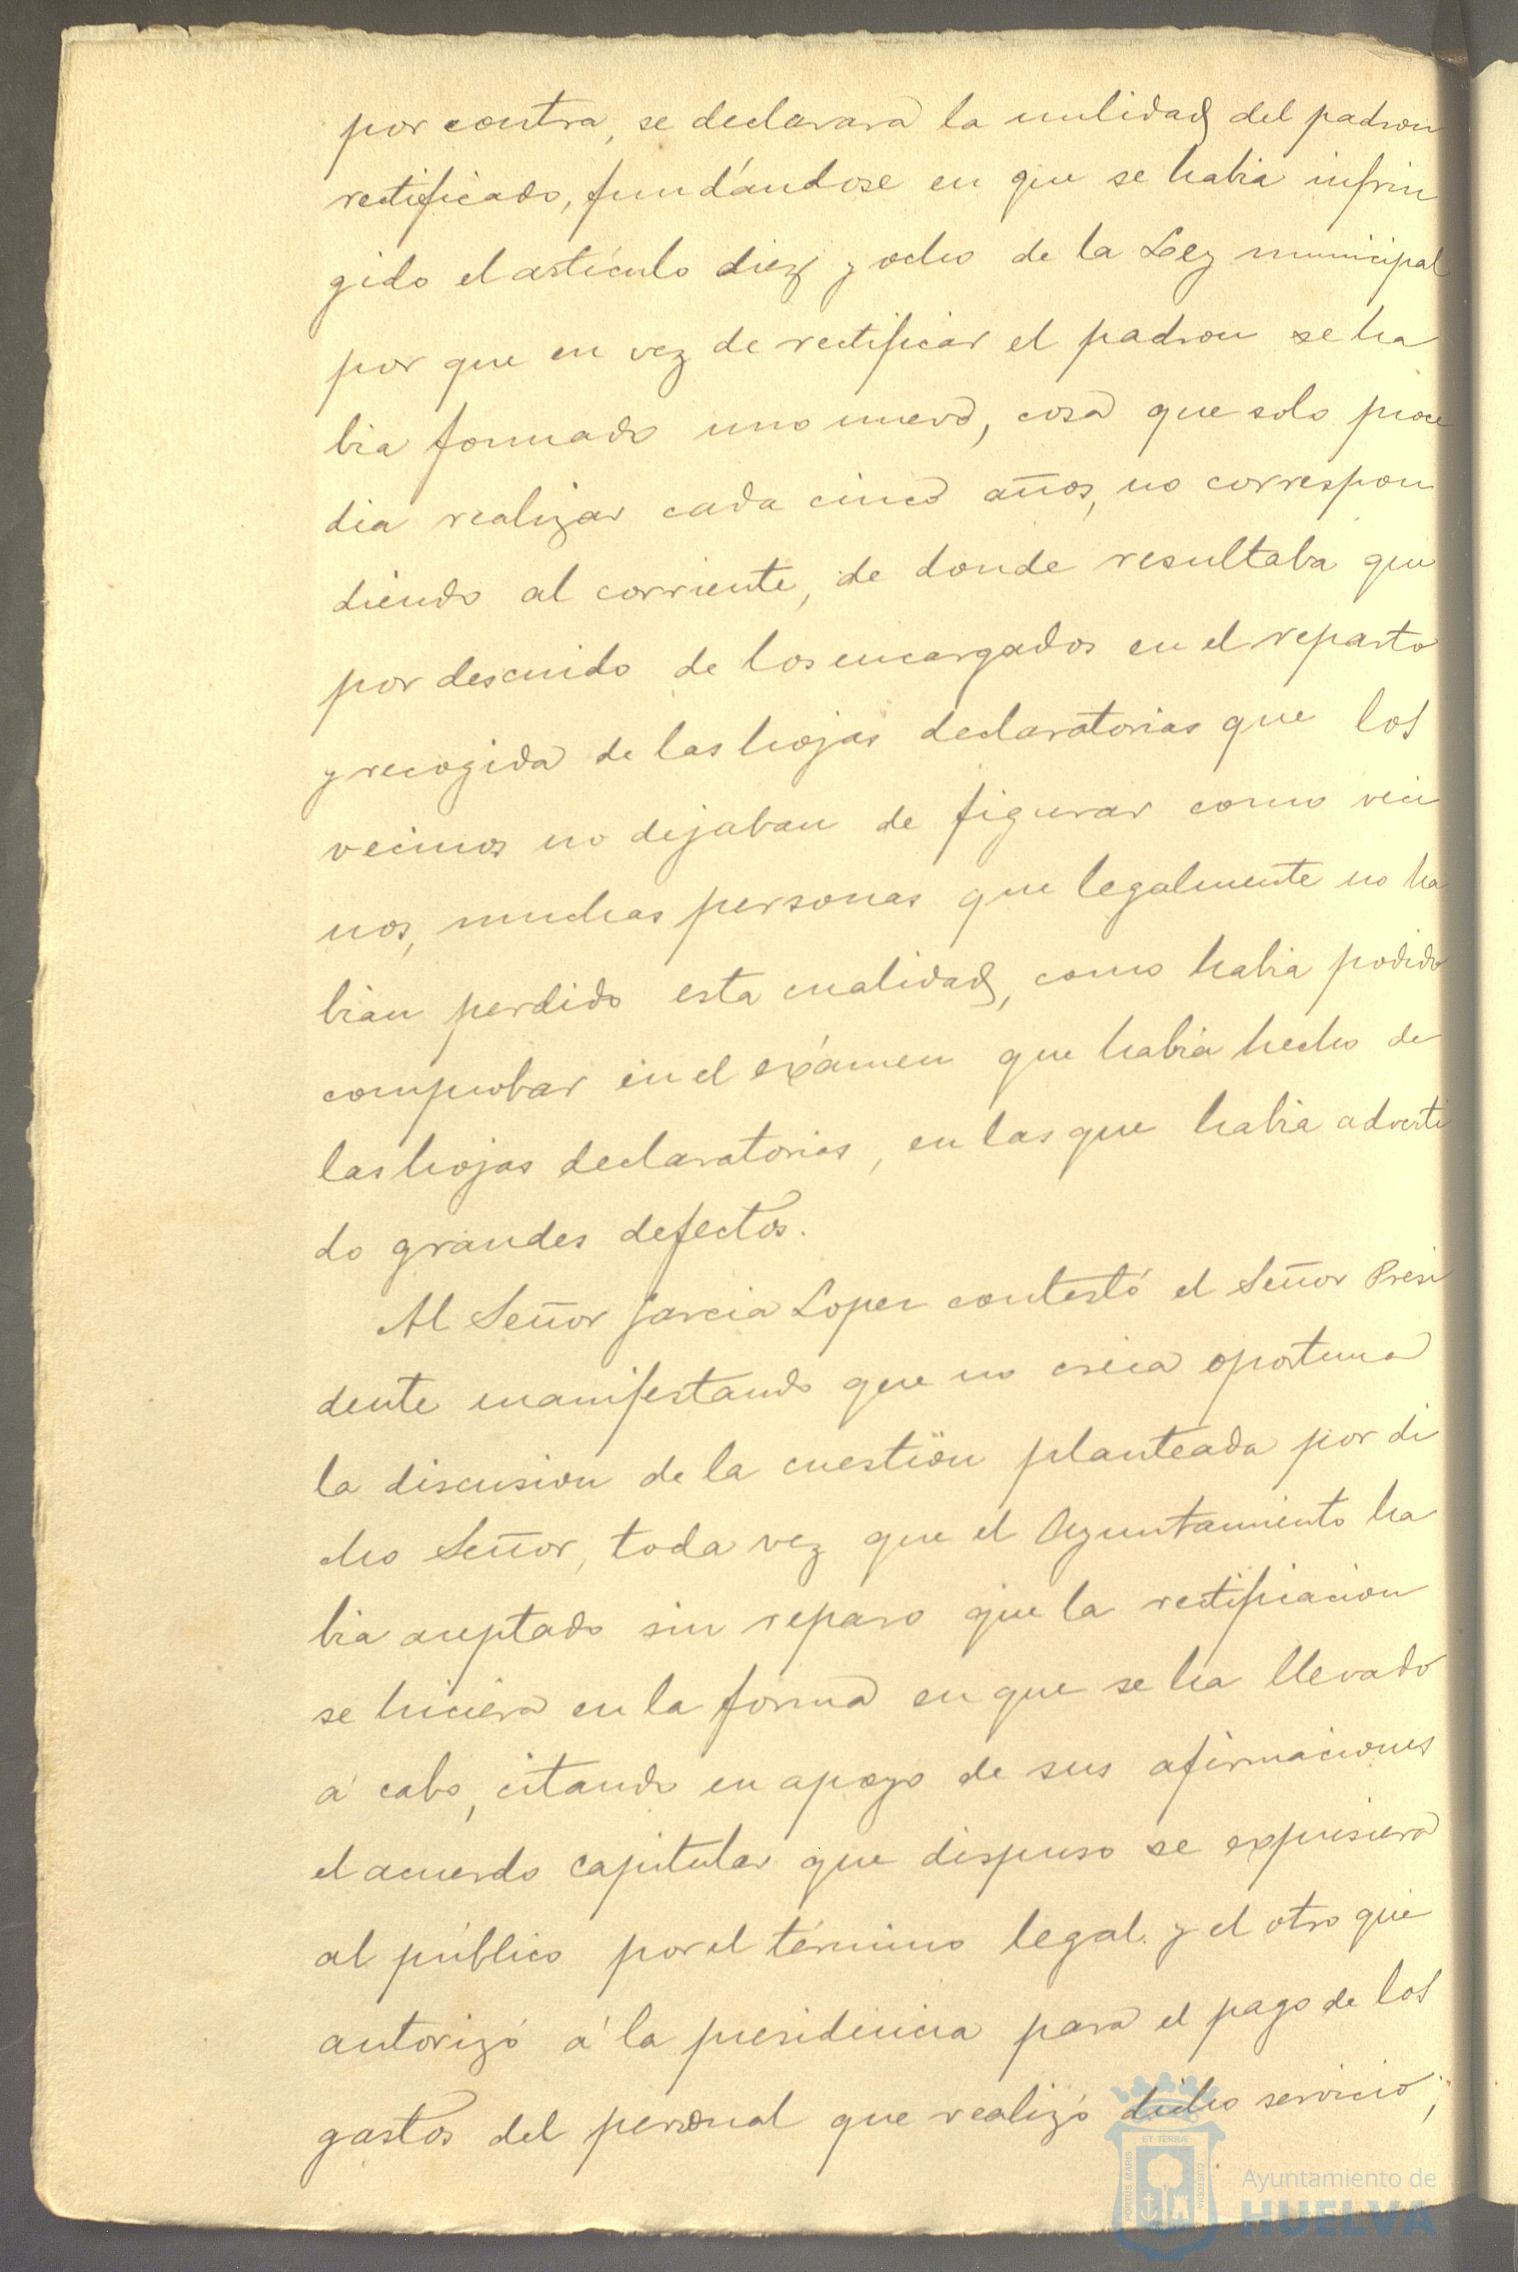 por contra, se declarara la nulidad del padron
rectificado, fundándose en que se habia infrin
gido el artículo diez y ocho de la Ley municipal
por que en vez de rectificar el padron se ha
bia formado uno nuevo, cosa que solo proce
dia realizar cada cinco años, no correspon
diendo al corriente, de donde resultaba que
por descuido de los encargados en el reparto
y recogida de las hojas declaratorias que los
vecinos no dejaban de figurar como veci
nos, muchas personas que legalmente no ha
bian perdido esta cualidad, como habia podido
comprobar en el exámen que habia hecho de
las hojas declaratorias, en las que habia adverti
do grandes defectos.
Al Señor Garcia Lopez contestó el Señor Presi
dente manifestando que no creia oportuna
la discusion de la cuestion planteada por di
cho Señor, toda vez que el Ayuntamiento ha
bia aceptado sin reparo que la rectificacion
se hiciera en la forma en que se ha llevado
á cabo, citando en apoyo de sus afirmaciones
el acuerdo capitular que dispuso se expusiera
al público por el término legal y el otro que
autorizó á la presidencia para el pago de los
gastos del personal que realizó dicho servicio;
PORTUS MARIS ET TERRÆ CUSTODIA
Ayuntamiento de
HUELVA